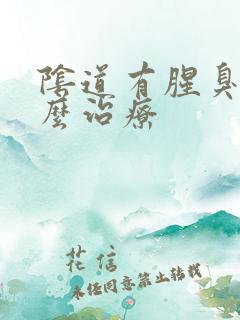 陰道有腥臭
麼治療
花信
未经同意禁止转载